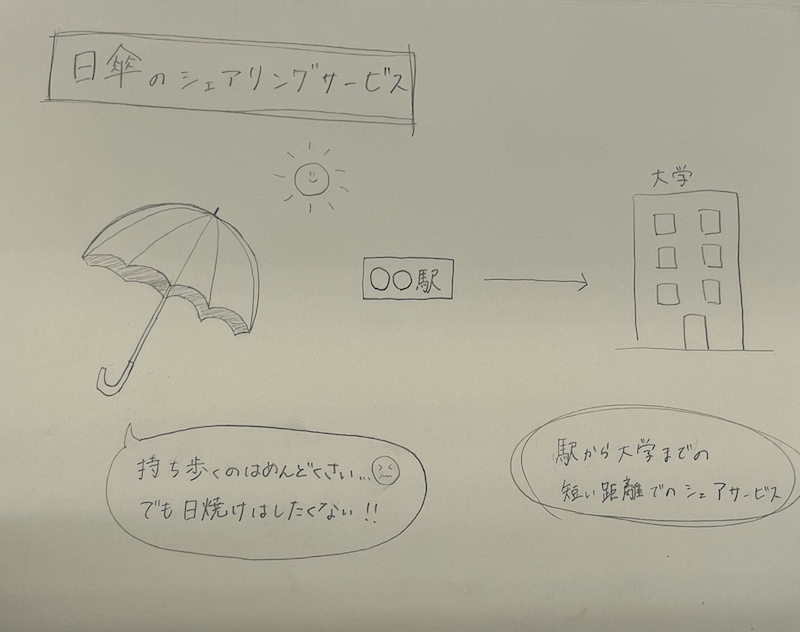 日傘のシェアリングサービス
大学
○○駅
持ち歩くのはめんどくさい...
でも日焼けはしたくない!!
駅から大学までの
短い距離でのシェアサービス